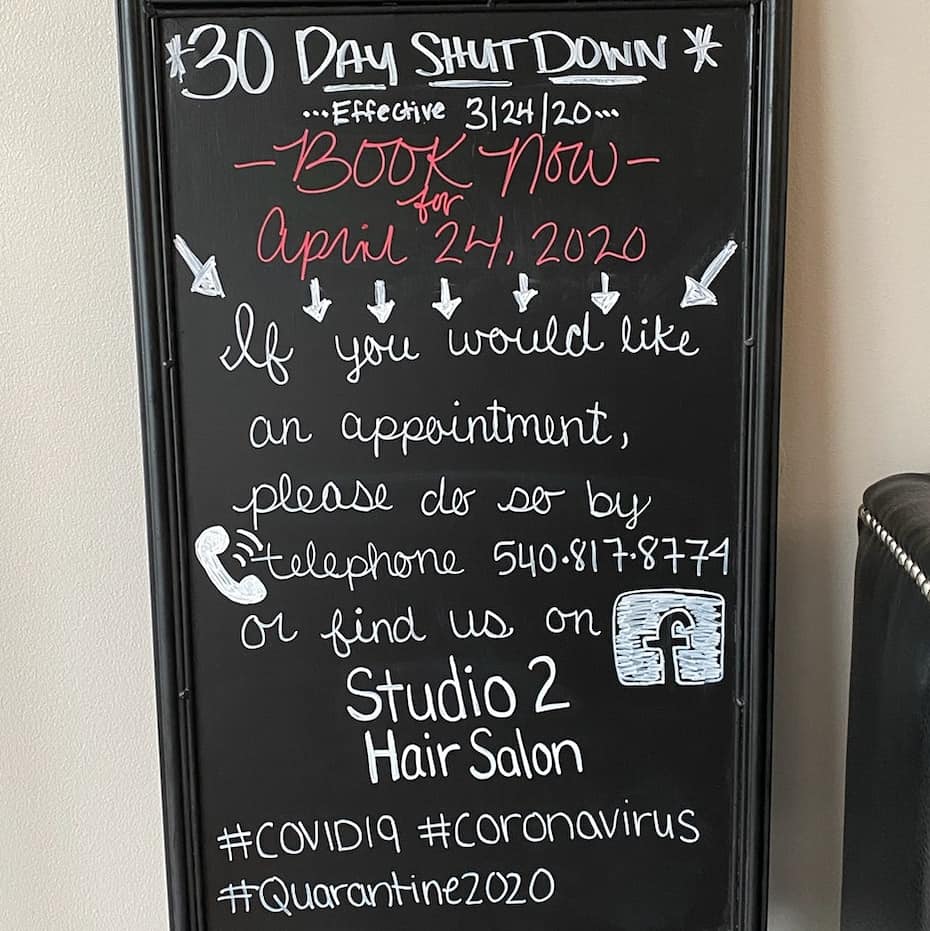 *30 DAY SHUTDOWN*
...Effective 3/24/20...
-BOOK NOW-
for
April 24, 2020
If you would like
an appointment,
please do so by
telephone 540.817.8774
or find us on f
Studio 2
Hair Salon
#COVID19 #coronavirus
#Quarantine2020